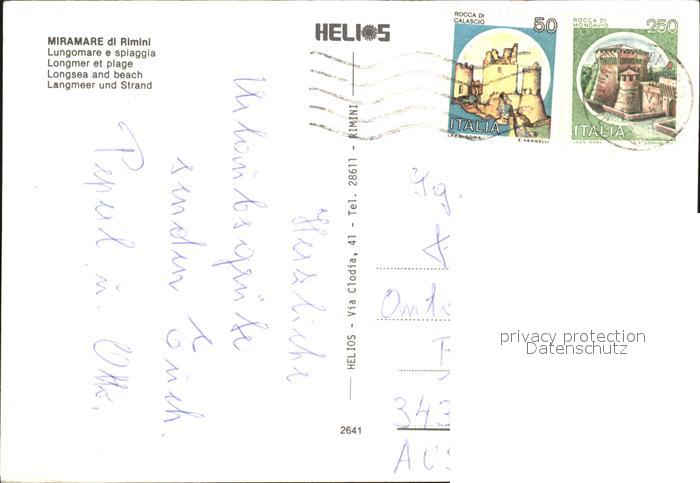 MIRAMARE di Rimini
Lungomare e spiaggia
Longmer et plage
Longsea and beach
Langmeer und Strand
HELIOS
ROCCA DI
CALASCIO
50
ITALIA
I.P.Z.S. ROMA
E. VANGELLI
ROCCA DI
MONDAVIO
250
ITALIA
I.P.Z.S. ROMA
HELIOS - Via Clodia, 41 - Tel. 28611 - RIMINI
2641
Herzliche
Urlaubsgrüße
senden Euch
Pepal u. Otto.
343
AUS
privacy protection
Datenschutz